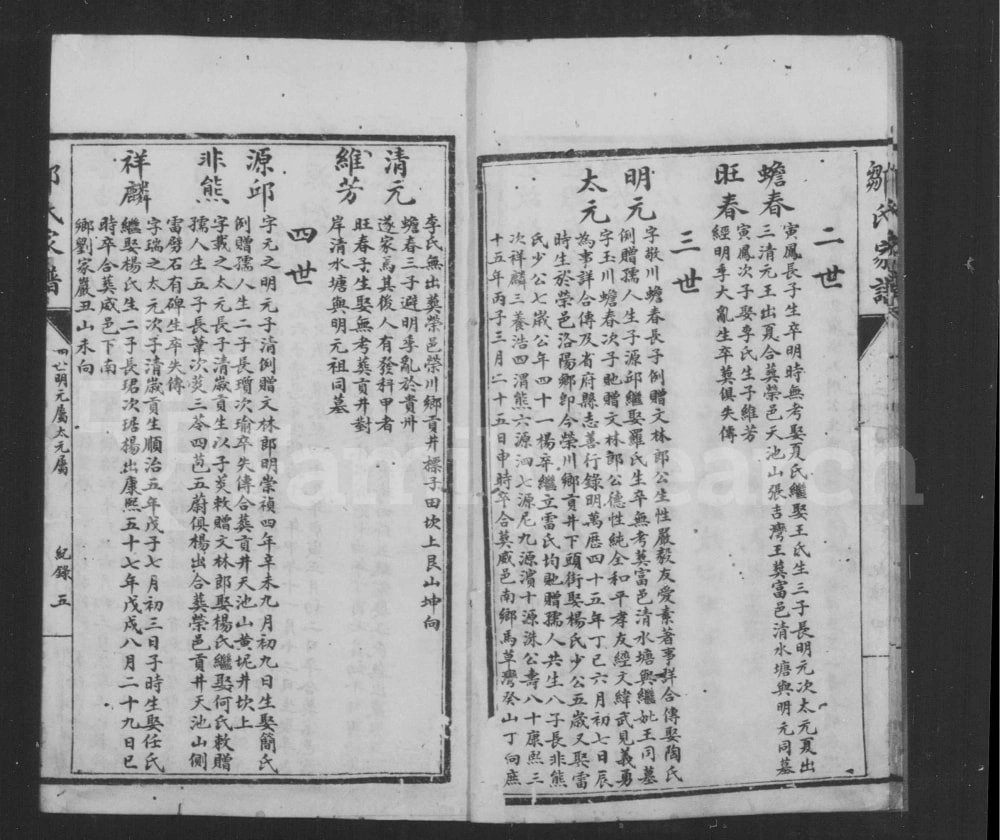 鄒氏家譜
二世
蟾春
寅鳳長子生卒明時無考娶夏氏繼娶王氏生三子長明元次太元夏出
三清元王出夏合葬榮邑天池山張吉灣王葬富邑清水塘與明元同墓
旺春
寅鳳次子娶李氏生子維芳
經明季大亂生卒葬俱失傳
三世
明元
字敬川蟾春長子例贈文林郎公生性嚴毅友愛素著事詳合傳娶陶氏
例贈孺人生子源邱繼娶羅氏生卒無考葬富邑清水塘與繼妣王同墓
太元
字玉川蟾春次子貤贈文林郎公德性純全和平孝友經文緯武見義勇
為事詳合傳及省府縣志善行錄明萬曆四十五年丁巳六月初七日辰
時生於榮邑洛陽鄉卽今榮川鄉貢井下頭街娶楊氏少公五歲又娶雷
氏少公七歲公年四十一楊卒繼立雷氏均貤贈孺人共生八子長非熊
次祥麟三養浩四渭熊六源泗七源尼九源濱十源洙公壽八十康熙三
十五年丙子三月二十五日申時卒合葬威邑南鄉馬草灣癸山丁向庶
李氏無出葬榮邑榮川鄉貢井標子田坎上艮山坤向
清元
蟾春三子避明季亂於貴州
遂家焉其後人有發科甲者
維芳
旺春子生娶無考葬貢井對
岸清水塘與明元祖同墓
四世
源邱
字元之明元子清例贈文林郎明崇禎四年辛未九月初九日生娶簡氏
例贈孺人生二子長瓚次瑜卒失傳合葬貢井天池山黃坭井坎上
非熊
字載之太元長子清歲貢生以子莢敕贈文林郎娶楊氏繼娶何氏敕贈
孺人生五子長萐次莢三苓四苞五蔚俱楊出合葬榮邑貢井天池山側
雷劈石有碑生卒失傳
祥麟
字瑞之太元次子清歲貢生順治五年戊子七月初三日子時生娶任氏
繼娶楊氏生二子長珺次琚楊出康熙五十七年戊戌八月二十九日巳
時卒合葬威邑下南
鄉劉家巖丑山未向
氏家譜
四世明元屬太元屬
紀錄 五
FamilySearch